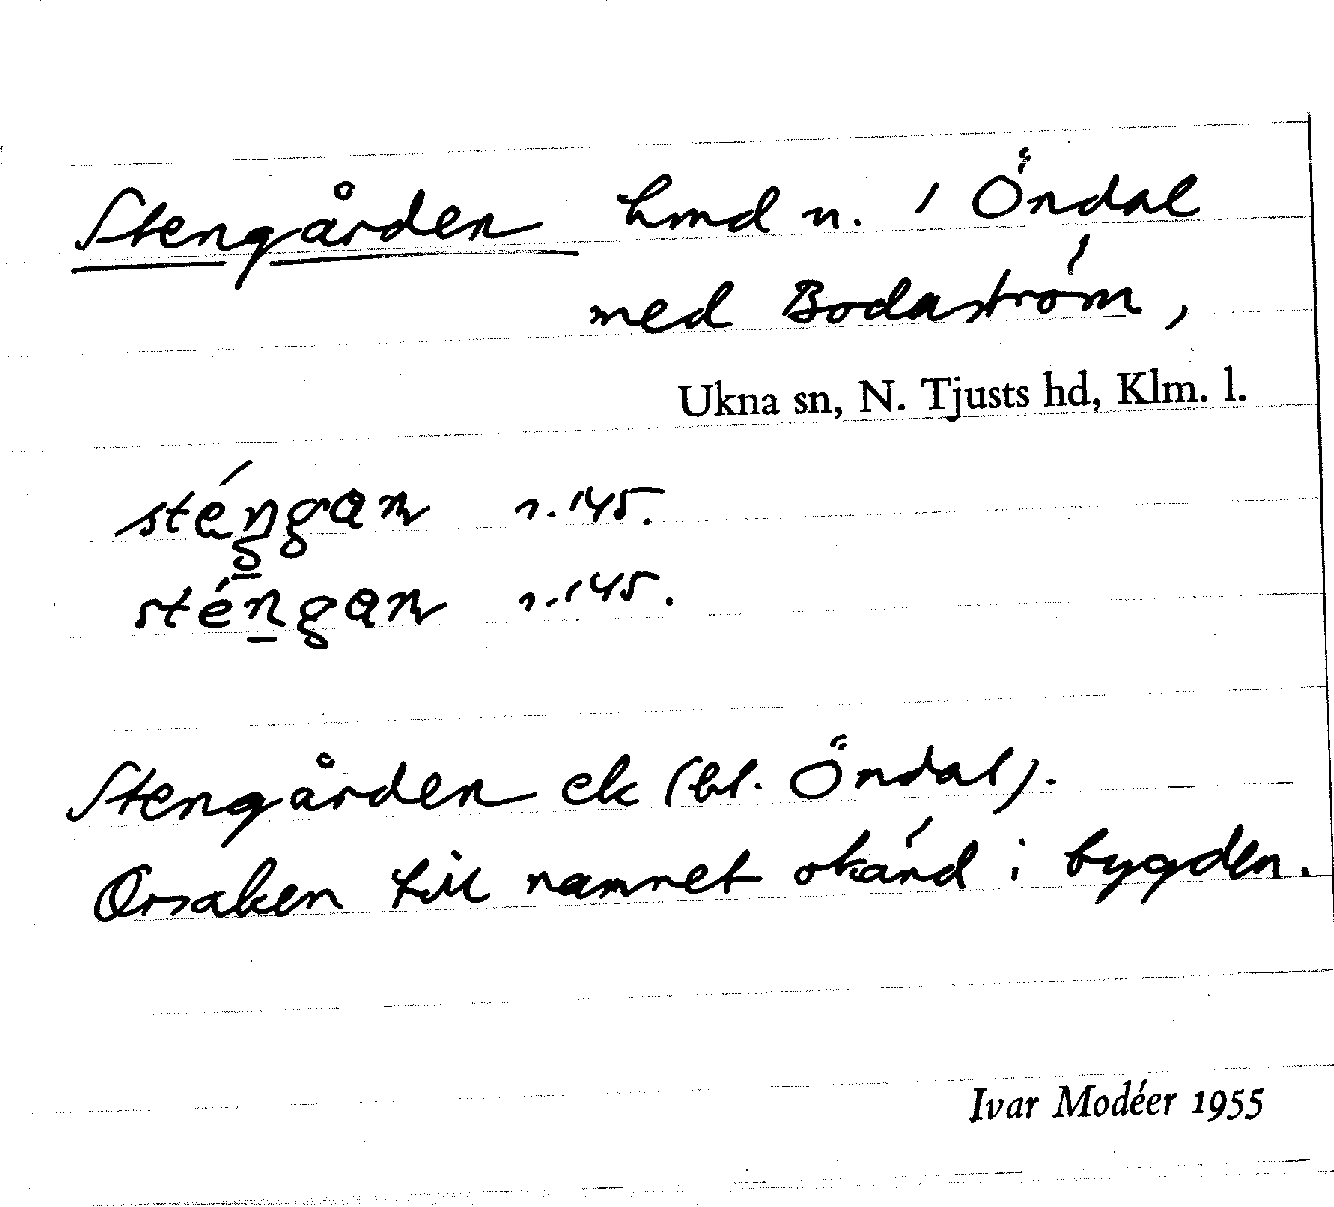 Stengården hmd n. 1 Öndal
med Bodaström,
Ukna sn, N. Tjusts hd, Klm. l.
sténgan 1.145.
sténgan 1.145.
Stengården ek (bl. Öndal).
Orsaken till namnet okänd i bygden.
Ivar Modéer 1955